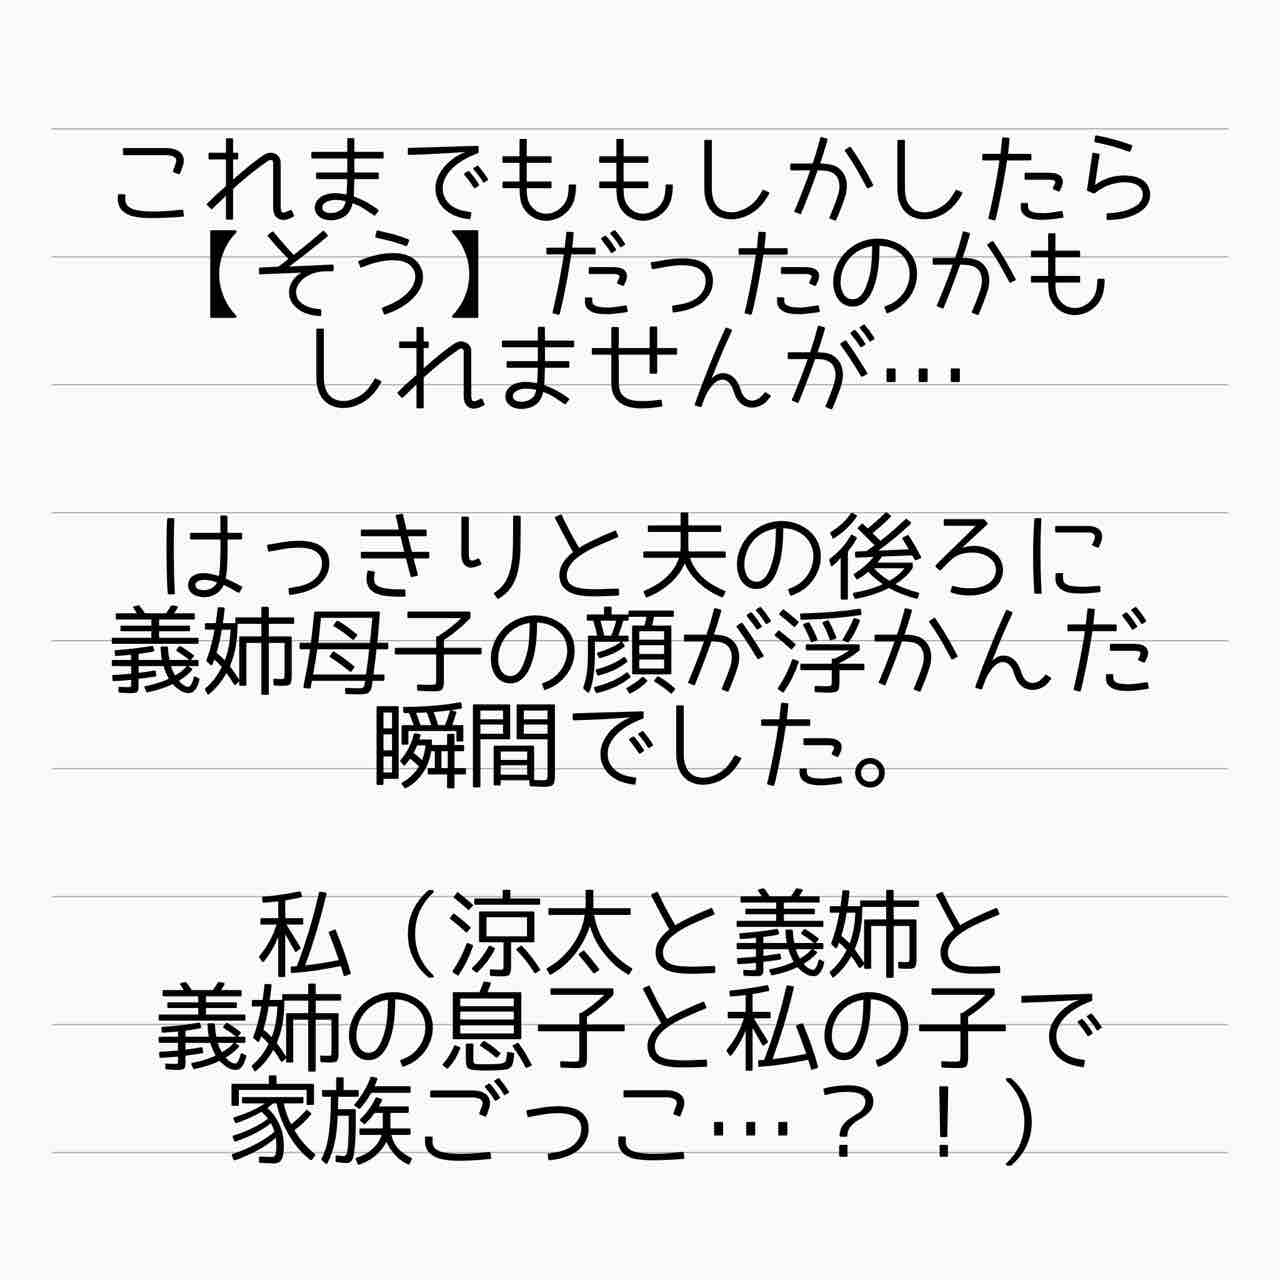 これまでももしかしたら
【そう】だったのかも
しれませんが…
はっきりと夫の後ろに
義姉母子の顔が浮かんだ
瞬間でした。
私（涼太と義姉と
義姉の息子と私の子で
家族ごっこ…？！）